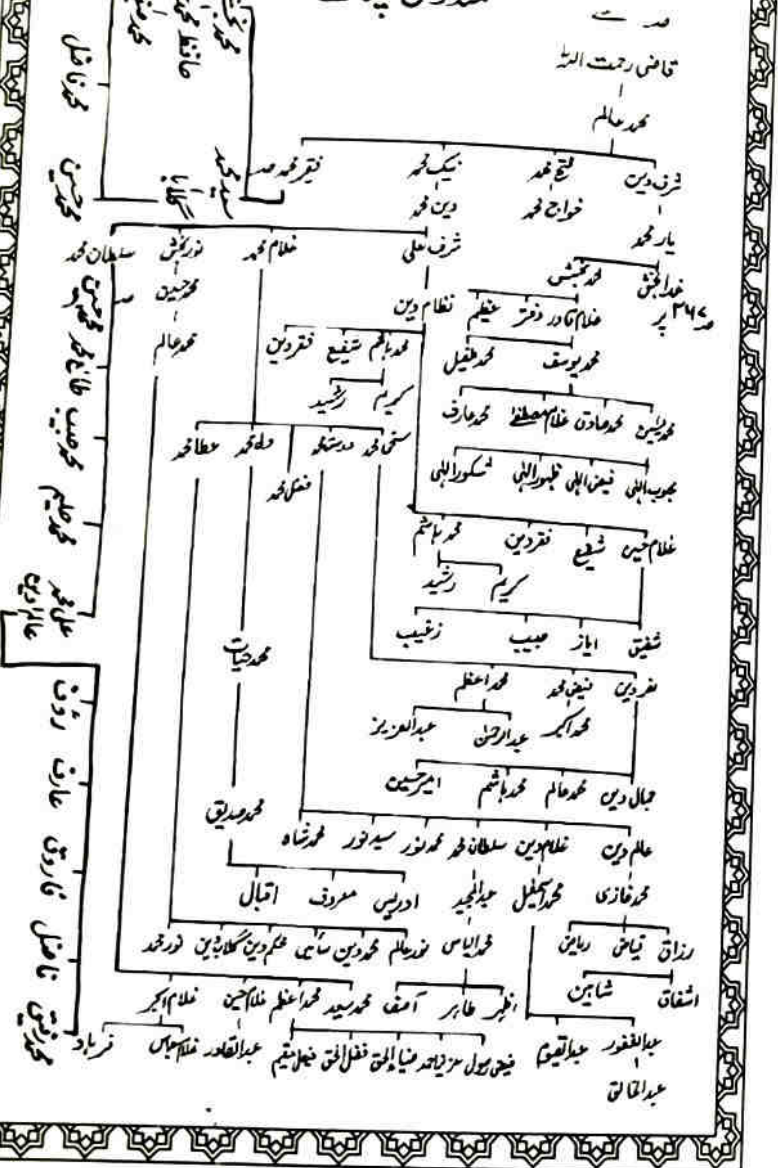 قاضی رحمت اللہ
محمد عالم
شرف دین فتح محمد نیک محمد فقیر محمد صد
یار محمد خواج محمد دین محمد
خدا بخش محمد بخش شرف علی غلام محمد نور بخش سلطان محمد
صد ۲۶۷ پر
غلام قادر دفتر عظیم نظام دین محمد حسین صد
محمد یوسف محمد طفیل محمد ہاشم شفیع فقر دین محمد عالم
کریم رشید
محمد یٰسین محمد صادق غلام مصطفےٰ محمد عارف
سخی محمد دوست محمد فضل محمد ولی محمد عطا محمد
محبوب الٰہی فیض الٰہی ظہور الٰہی شکور الٰہی
غلام حسین شفیع فقر دین محمد ہاشم
کریم رشید
شفیق ایاز حبیب زغیب
محمد حیات
فیض محمد محمد اعظم
محمد اکبر عبدالرحمٰن عبدالعزیز
جمال دین محمد عالم محمد ہاشم امیر حسین
محمد صدیق
عالم دین غلام دین سلطان محمد محمد نور سید نور محمد شاہ
محمد غازی محمد اسمٰعیل عبدالمجید ادریس معروف اقبال
رزاق فیاض ریاض محمد الیاس نور عالم محمد دین سائیں حکم دین گلاب دین نور محمد
اشفاق شاہین اظہر طاہر آصف محمد سعید محمد اعظم غلام حسین غلام اکبر
عبدالغفور عبدالقیوم فیض رسول ضیاء الحق فضل الحق عبدالقادر غلام عباس فرہاد
عبدالخالق
حافظ محمد
سید محمد
گلابا
محمد فاضل
محمد حسین
محمد حسین
طالع محمد
محمد حبیب
محمد حلیم
علی محمد
عالم دین
رؤف
عارف
فاروق
فاضل
محمد رفیق